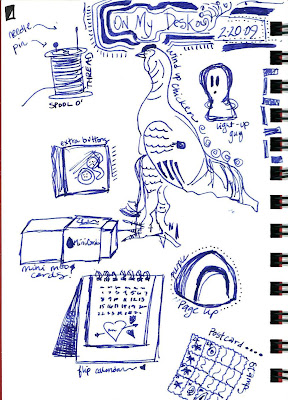 On My Desk
2-20-09
needle
pin
THREAD
SPOOL O'
wind up chicken
light-up
guy
extra buttons
mini moo
cards
PAGE UP
flip calendar
Postcard